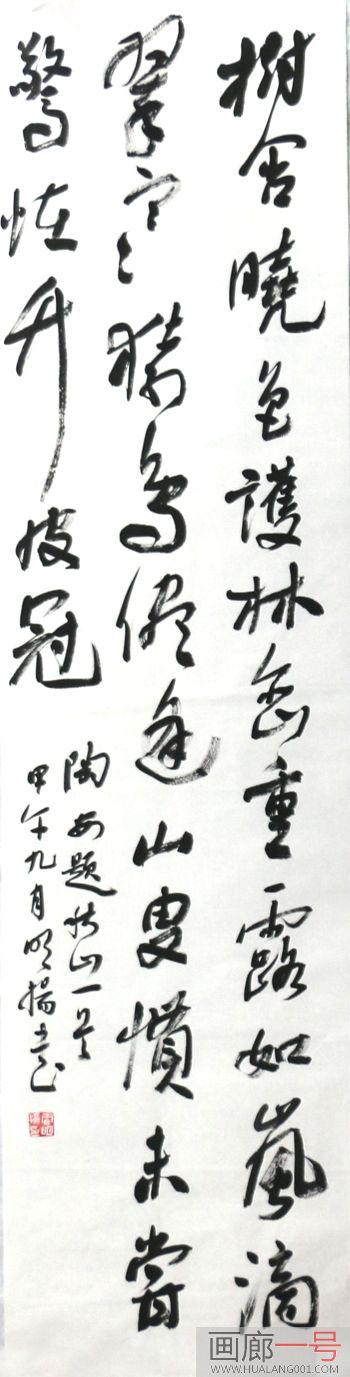 樹含曉色護林巒重露如嵐滴
翠寒猿鳥儘逢山叟慣未嘗
驚怪竹皮冠
陶安題山一首
甲午九月明揚書
画廊一号
WWW.HUALANG001.COM